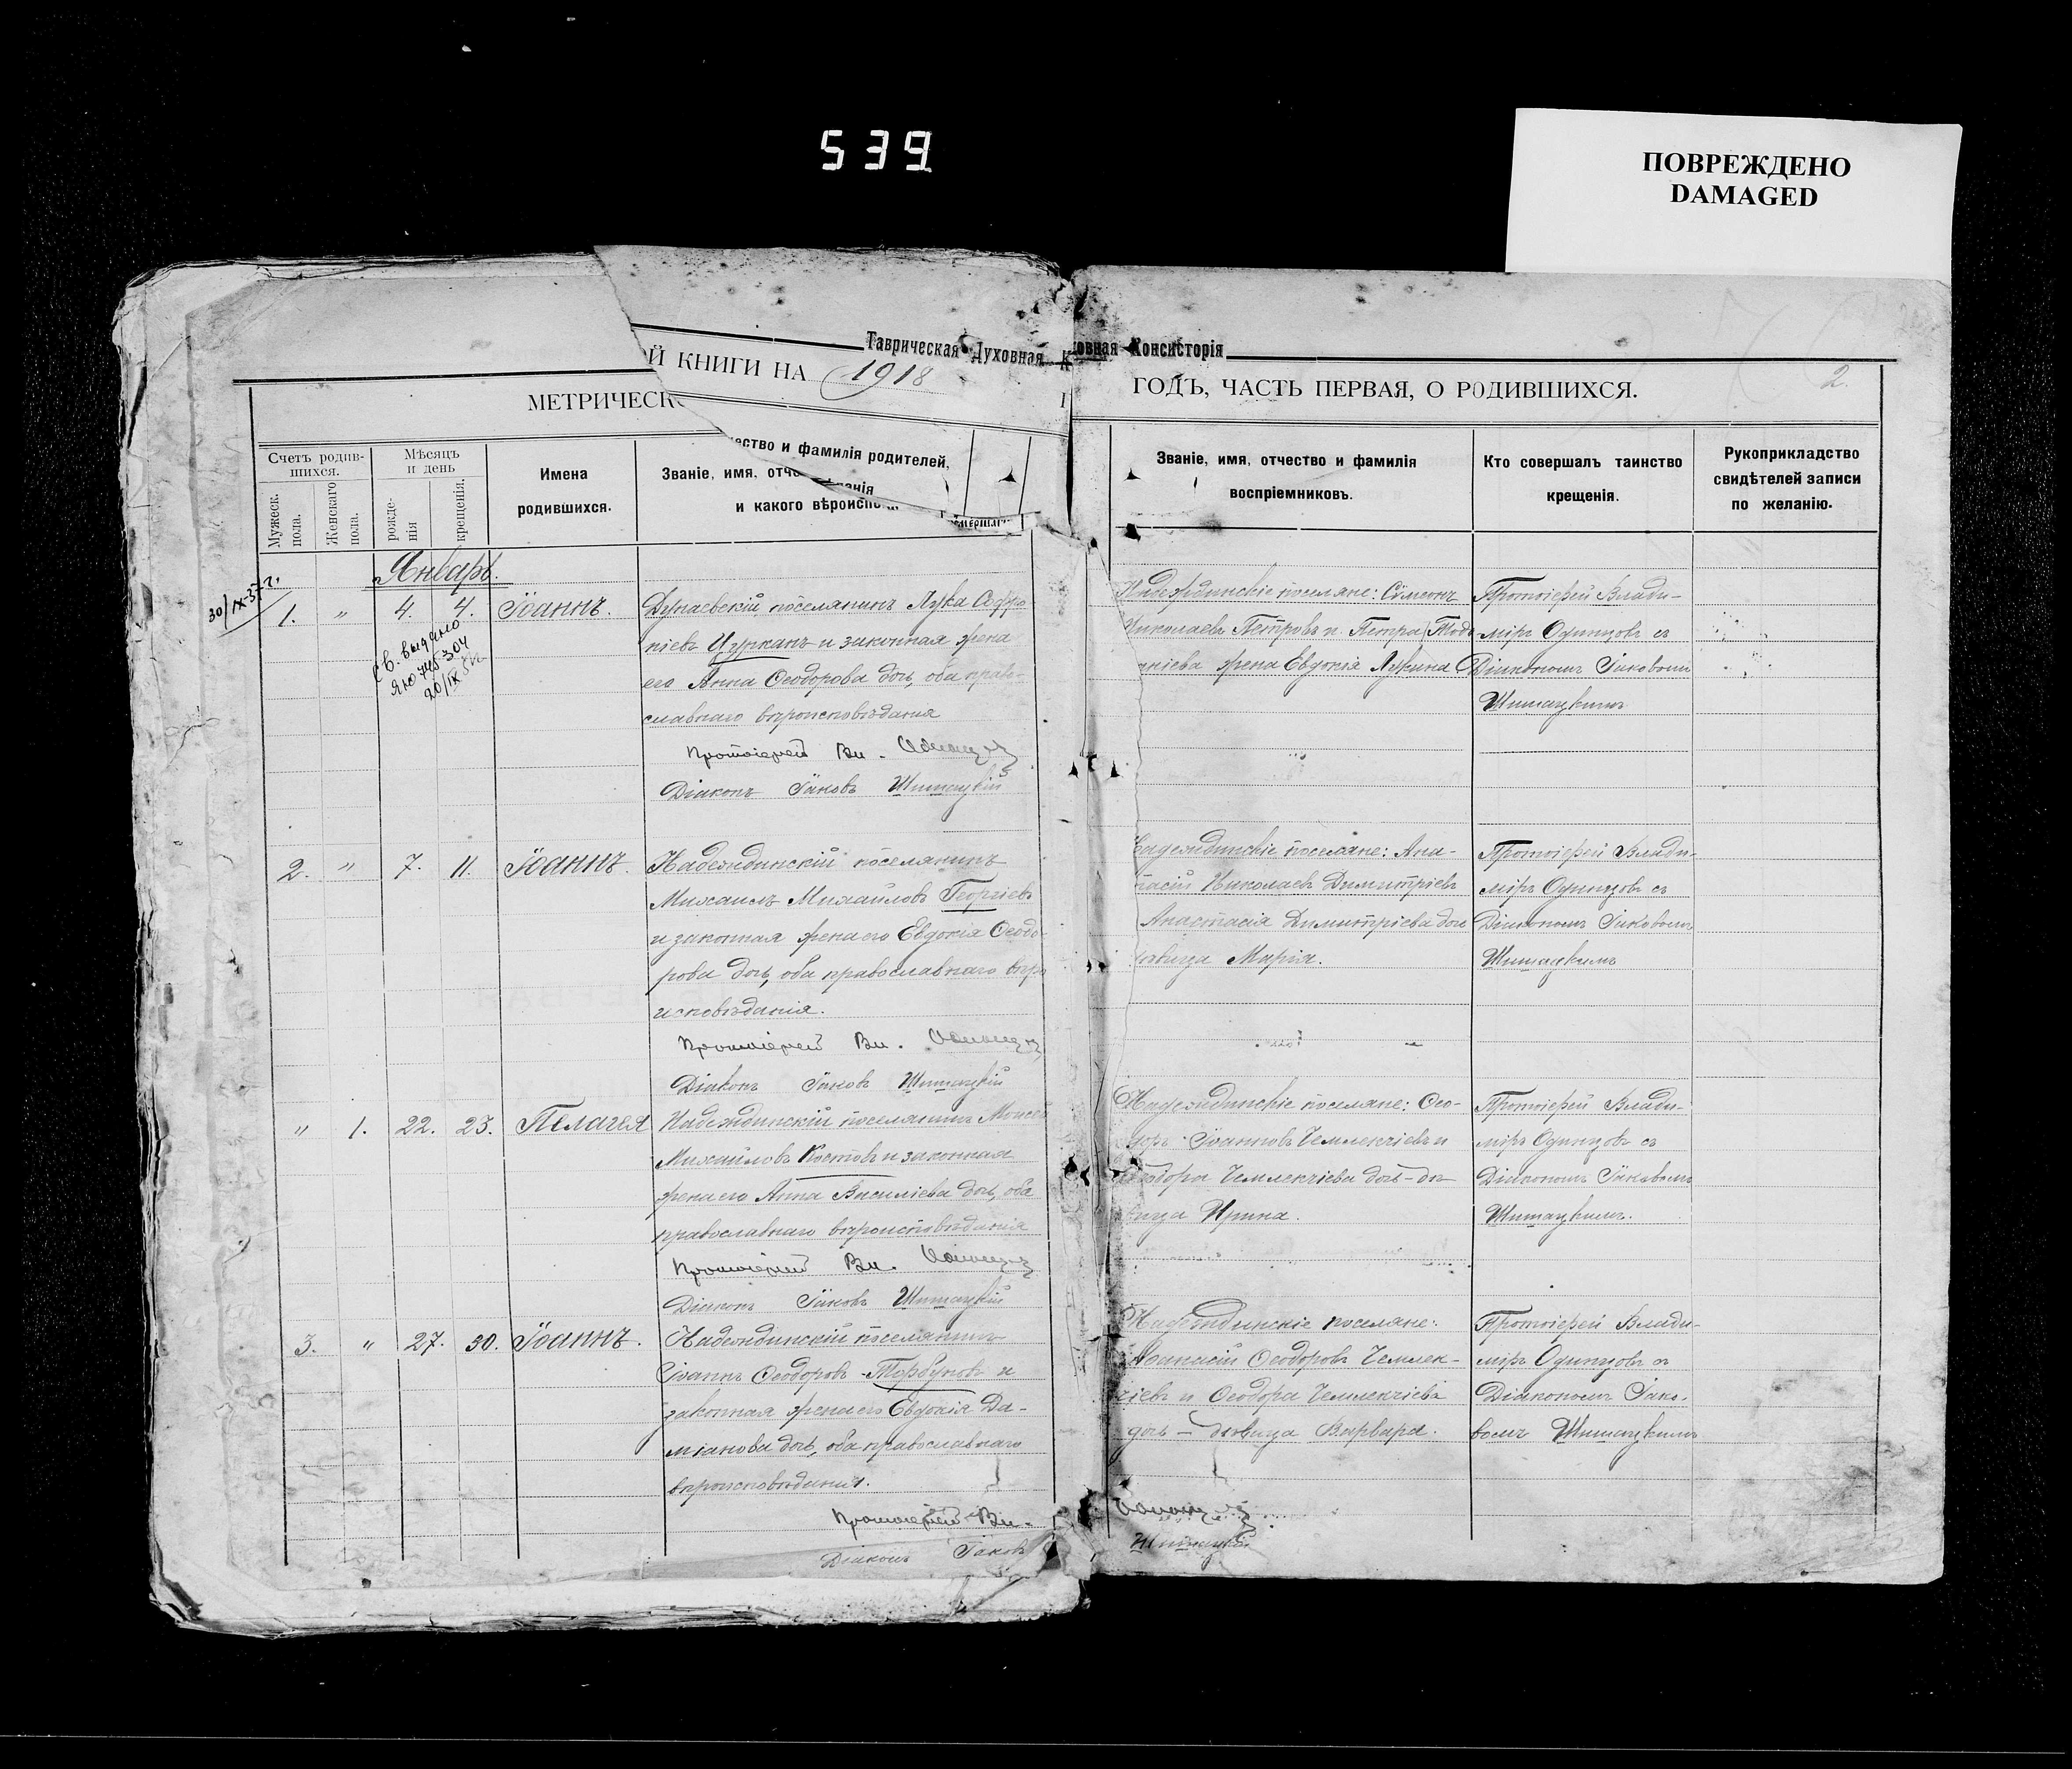 539
ПОВРЕЖДЕНО
DAMAGED
Таврическая Духовная К
овная Консисторія
Й КНИГИ НА 1918
МЕТРИЧЕСК
ГОДЪ, ЧАСТЬ ПЕРВАЯ, О РОДИВШИХСЯ.
2.
Счетъ родив-
шихся.
Мужеск.
пола.
Женскаго
пола.
Мѣсяцъ
и день
рожде-
нія
крещенія.
Имена
родившихся.
ество и фамилія родителей,
Званіе, имя, отче
и какого вѣроиспо
Званіе, имя, отчество и фамилія
воспріемниковъ.
Кто совершалъ таинство
крещенія.
Рукоприкладство
свидѣтелей записи
по желанію.
Январь.
30/IX-37 г.
1. " 4. 4. Іоаннъ.
Св. выдано
20/IX
Дунаевскій поселянинъ Лука Софро
ніевъ Цурканъ и законная жена
его Анна Ѳеодорова дочь, оба прав-
славнаго вѣроисповѣданія
Протоіерей Вл. Одинцовъ
Діаконъ Іаковъ Шишацкій
Надеждинскіе поселяне: Сѵмеонъ
Николаевъ Петровъ и Петра
жена Евдокія Лукина
Протоіерей Влади-
міръ Одинцовъ съ
Діакономъ Іаковомъ
Шишацкимъ
2. " 7. 11. Іоаннъ.
Надеждинскій поселянинъ
Михаилъ Михайловъ Георгіевъ
и законная жена его Евдокія Ѳеодо-
рова дочь, оба православнаго вѣро
исповѣданія.
Протоіерей Вл. Одинцовъ
Діаконъ Іаковъ Шишацкій
адеждинскіе поселяне: Ана-
тасій Николаевъ Димитріевъ
Анастасія Димитріева дочь
ѣвица Марія.
Протоіерей Влади-
міръ Одинцовъ съ
Діакономъ Іаковомъ
Шишацкимъ
" 1. 22. 23. Пелагея
Надеждинскій поселянинъ Моисей
Михайловъ Костовъ и законная
жена его Анна Василіева дочь, оба
православнаго вѣроисповѣданія
Протоіерей Вл. Одинцовъ
Діаконъ Іаковъ Шишацкій
Надеждинскіе поселяне: Ѳео-
доръ Іоанновъ Чемлекчіевъ и
Ѳеодора Чемлекчіева дочь-дѣ
вица Ирина.
Протоіерей Влади-
міръ Одинцовъ съ
Діакономъ Іаковомъ
Шишацкимъ.
3. " 27. 30. Іоаннъ.
Надеждинскій поселянинъ
Іоаннъ Ѳеодоровъ Тербуновъ и
законная жена его Евдокія Да-
міанова дочь, оба православнаго
вѣроисповѣданія.
Протоіерей Вл. Одинцовъ
Діаконъ Іаковъ Шишацкій
Надеждинскіе поселяне:
Аѳанасій Ѳеодоровъ Чемлек-
чіевъ и Ѳеодора Чемлекчіева
дочь - дѣвица Варвара.
Протоіерей Влади-
міръ Одинцовъ съ
Діакономъ Іако-
вомъ Шишацкимъ